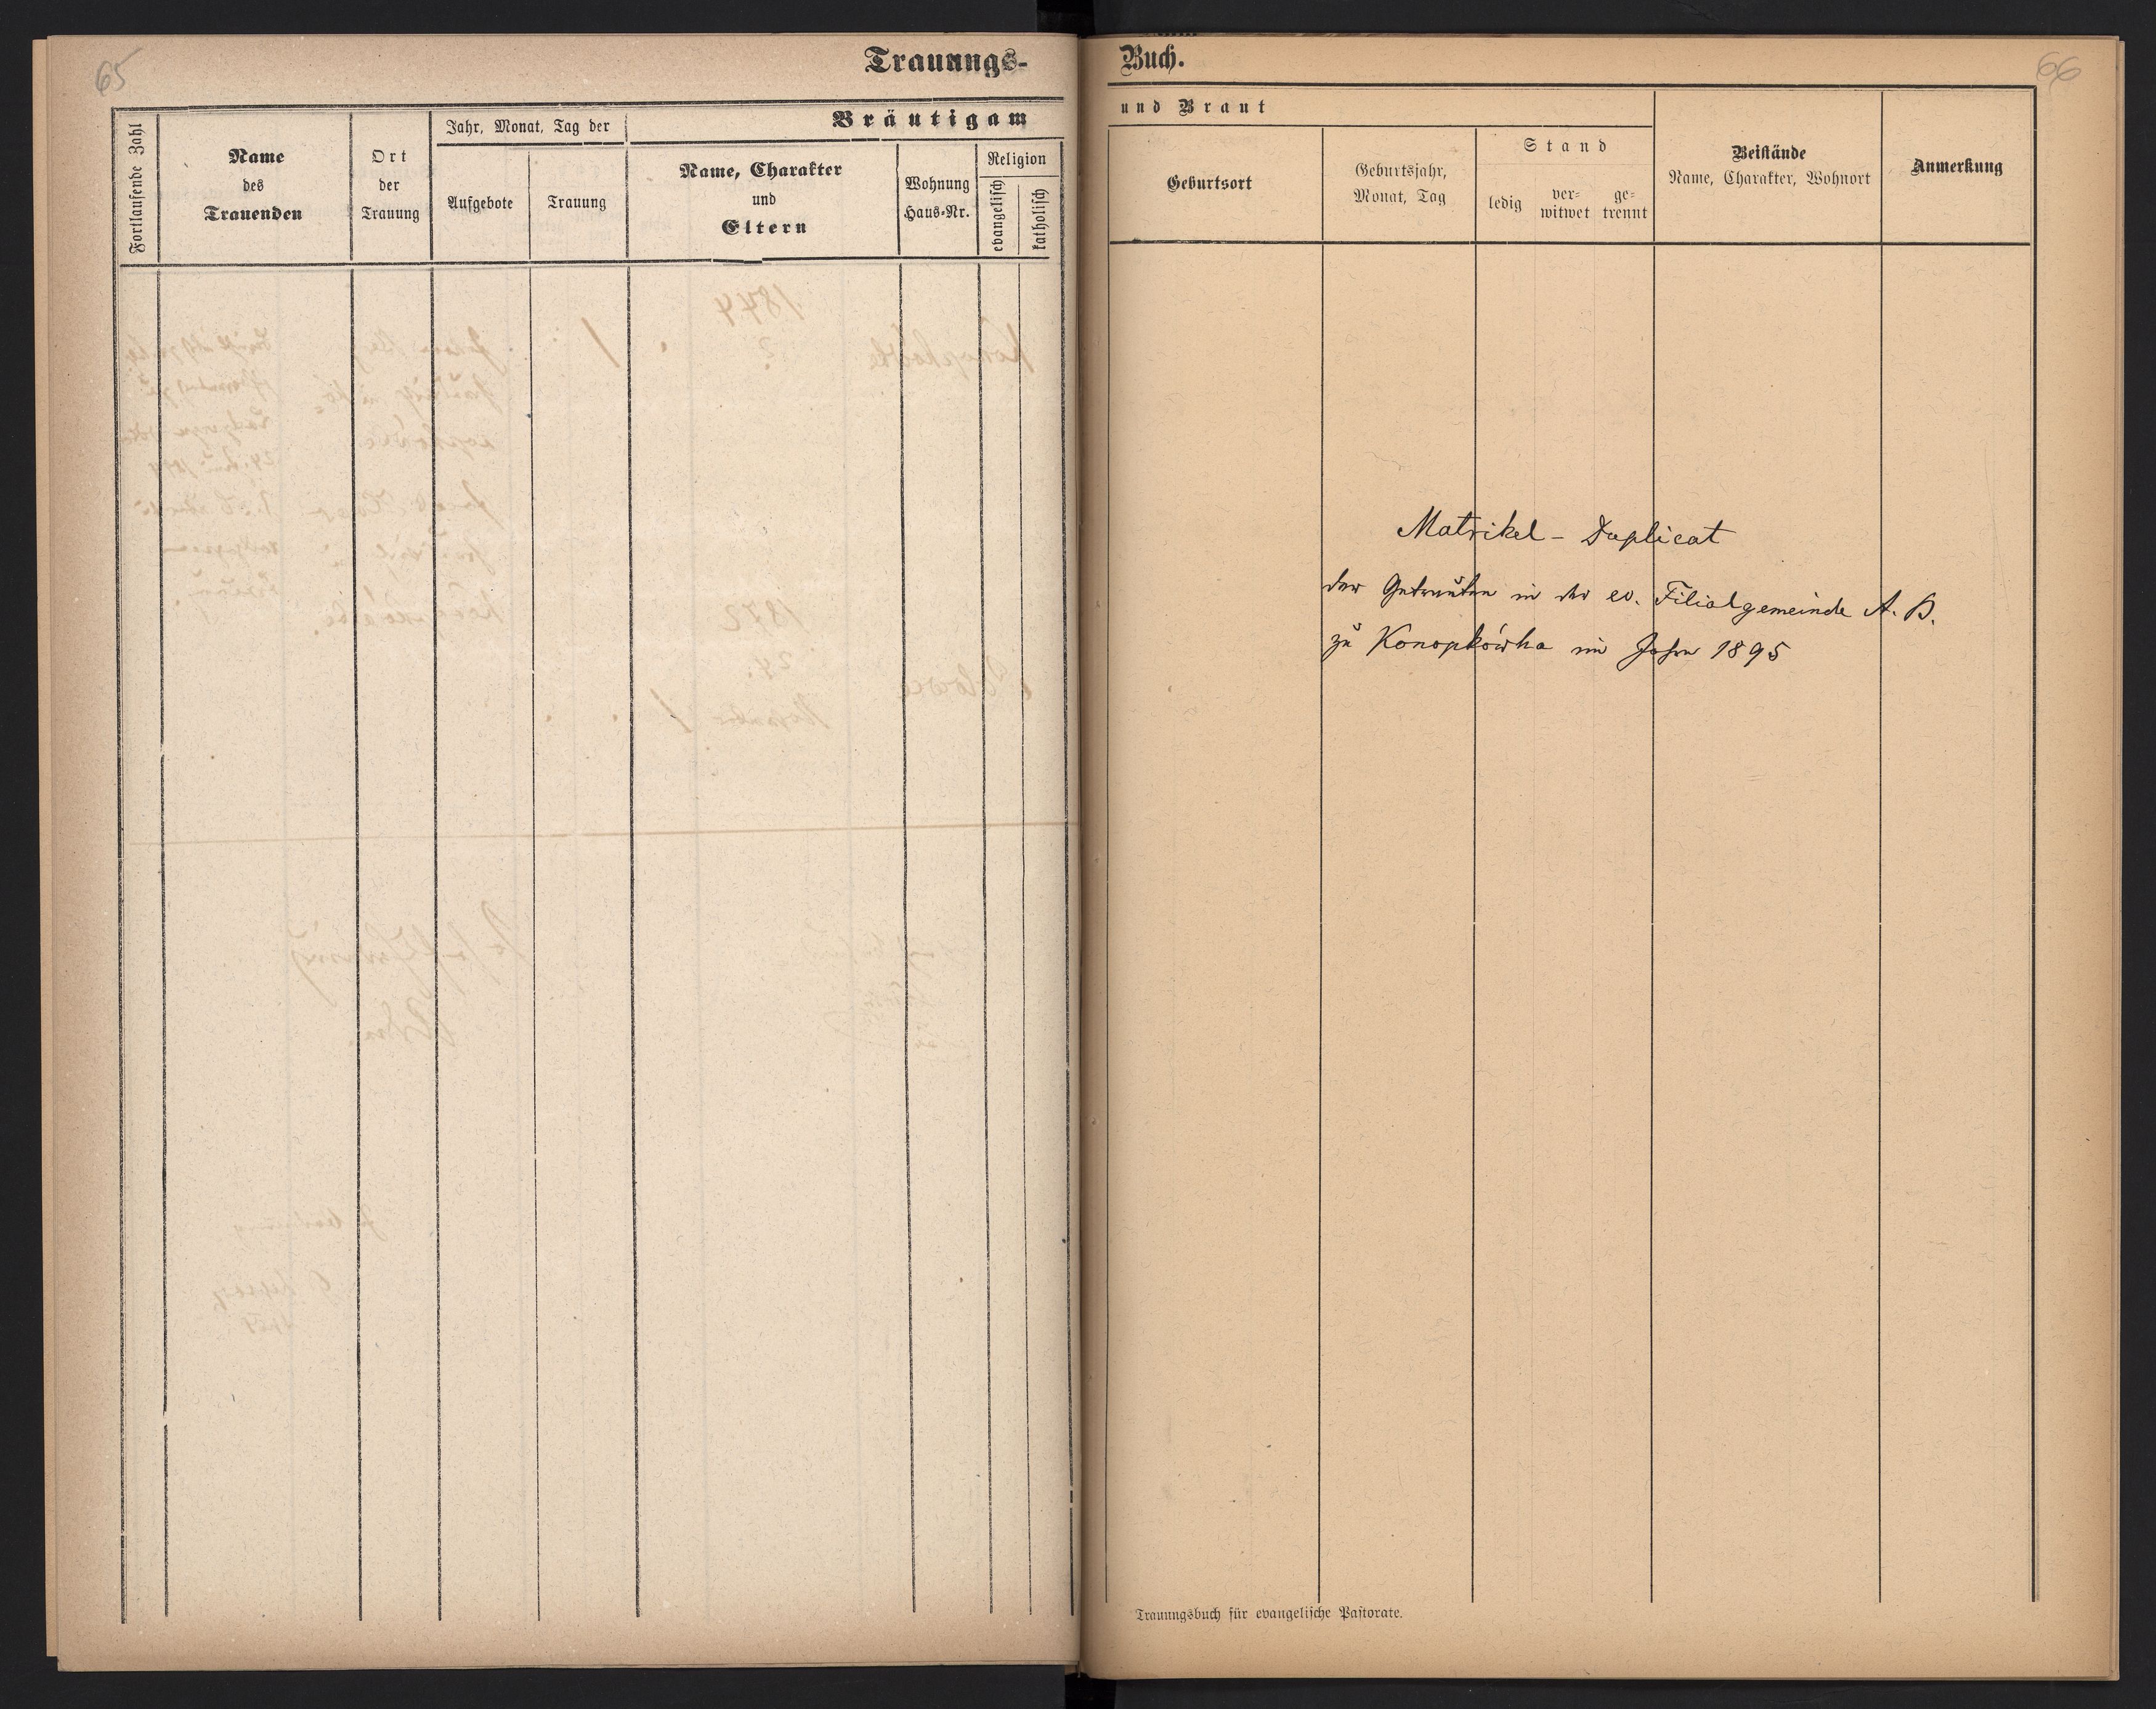 65
Trauungs-
Fortlaufende Zahl
Name
des
Trauenden
Ort
der
Trauung
Jahr, Monat, Tag der
Aufgebote
Trauung
Bräutigam
Name, Charakter
und
Eltern
Wohnung
Haus-Nr.
Religion
evangelisch
katholisch
Buch.
66
und Braut
Geburtsort
Geburtsjahr,
Monat, Tag
Stand
ledig
ver-
witwet
ge-
trennt
Beistände
Name, Charakter, Wohnort
Anmerkung
Matrikel - Duplicat
der Getrauten in der ev. Filialgemeinde A. B.
zu Konopkówka im Jahre 1895
Trauungsbuch für evangelische Pastorate.